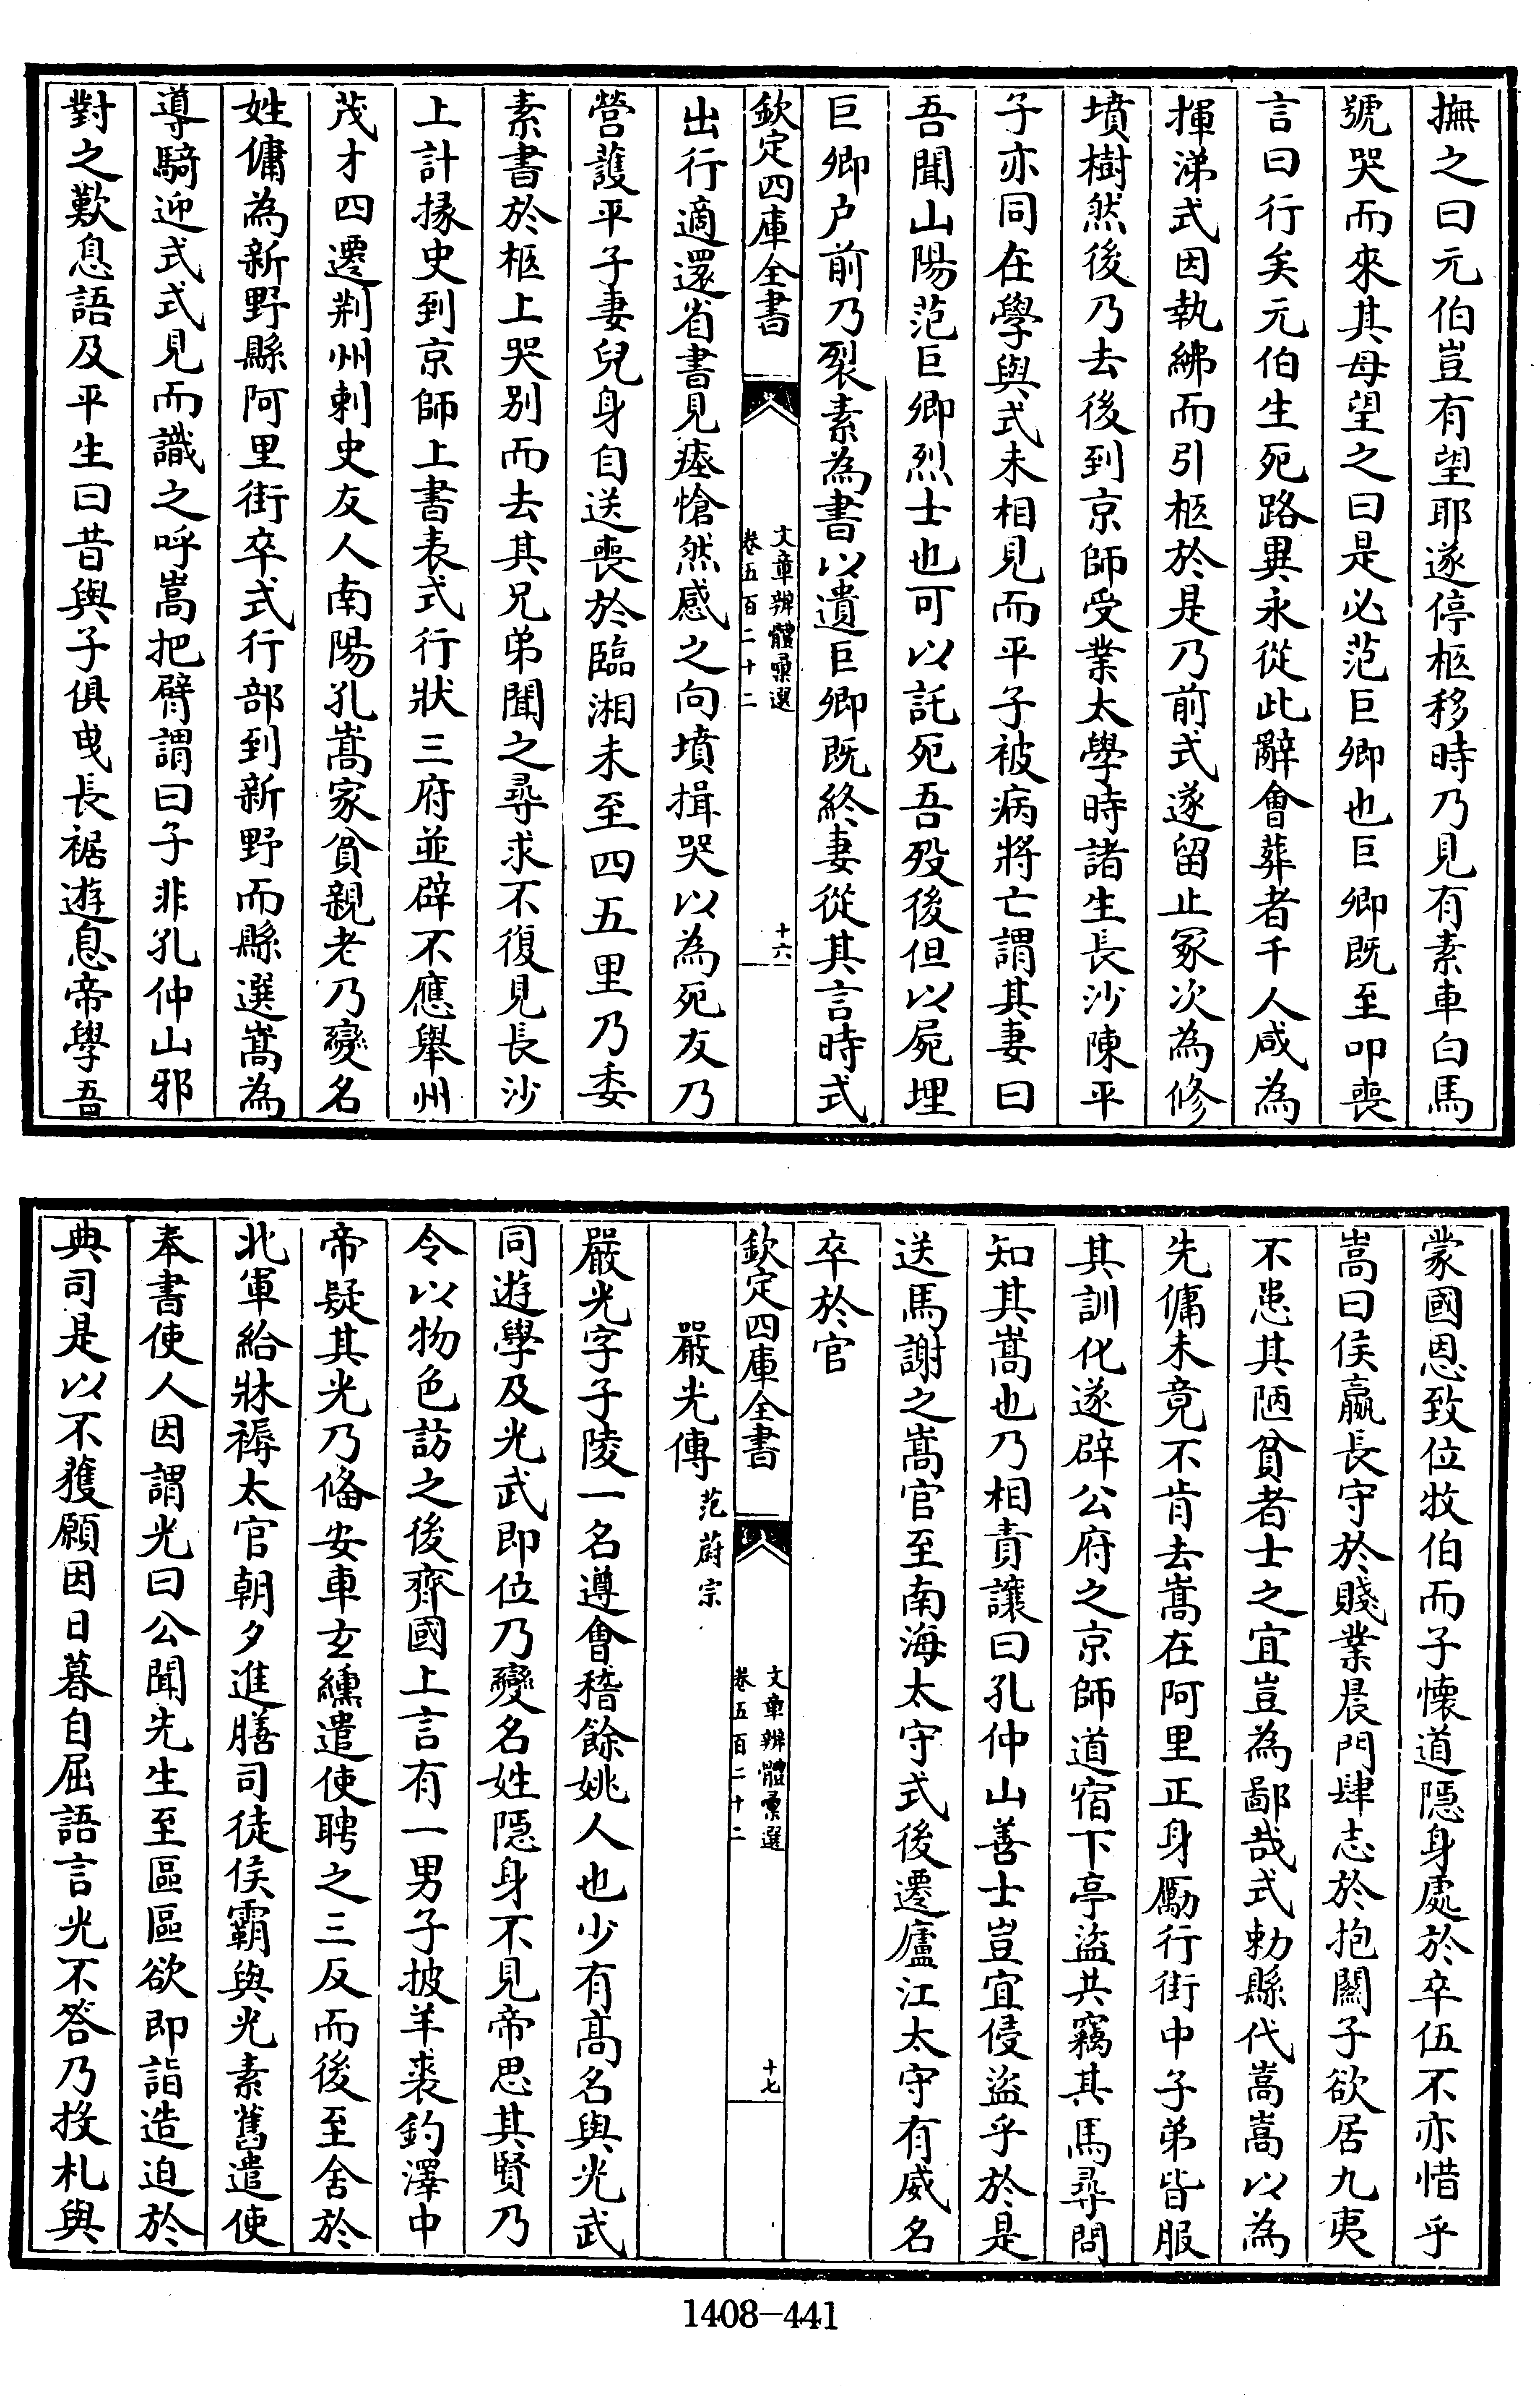 撫之曰元伯豈有望耶遂停柩移時乃見有素車白馬
號哭而來其母望之曰是必范巨卿也巨卿既至叩喪
言曰行矣元伯生死路異永從此辭會葬者千人咸為
揮涕式因執紼而引柩於是乃前式遂留止冢次為修
墳樹然後乃去後到京師受業太學時諸生長沙陳平
子亦同在學與式未相見而平子被病將亡謂其妻曰
吾聞山陽范巨卿烈士也可以託死吾歿後但以屍埋
巨卿户前乃裂素為書以遺巨卿既終妻從其言時式
欽定四庫全書
文章辨體彙選
卷五百二十二
十六
出行適還省書見瘞愴然感之向墳揖哭以為死友乃
營護平子妻兒身自送喪於臨湘未至四五里乃委
素書於柩上哭别而去其兄弟聞之尋求不復見長沙
上計掾史到京師上書表式行狀三府並辟不應舉州
茂才四遷荆州刺史友人南陽孔嵩家貧親老乃變名
姓傭為新野縣阿里街卒式行部到新野而縣選嵩為
導騎迎式式見而識之呼嵩把臂謂曰子非孔仲山邪
對之歎息語及平生曰昔與子俱曳長裾遊息帝學吾
蒙國恩致位牧伯而子懷道隱身處於卒伍不亦惜乎
嵩曰侯嬴長守於賤業晨門肆志於抱關子欲居九夷
不患其陋貧者士之宜豈為鄙哉式勅縣代嵩嵩以為
先傭未竟不肯去嵩在阿里正身厲行街中子弟皆服
其訓化遂辟公府之京師道宿下亭盜共竊其馬尋問
知其嵩也乃相責讓曰孔仲山善士豈宜侵盜乎於是
送馬謝之嵩官至南海太守式後遷廬江太守有威名
卒於官
欽定四庫全書
文章辨體彙選
卷五百二十二
十七
嚴光傳范蔚宗
嚴光字子陵一名遵會稽餘姚人也少有高名與光武
同遊學及光武即位乃變名姓隱身不見帝思其賢乃
令以物色訪之後齊國上言有一男子披羊裘釣澤中
帝疑其光乃備安車玄纁遣使聘之三反而後至舍於
北軍給牀褥太官朝夕進膳司徒侯霸與光素舊遣使
奉書使人因謂光曰公聞先生至區區欲即詣造迫於
典司是以不獲願因日暮自屈語言光不答乃投札與
1408-441